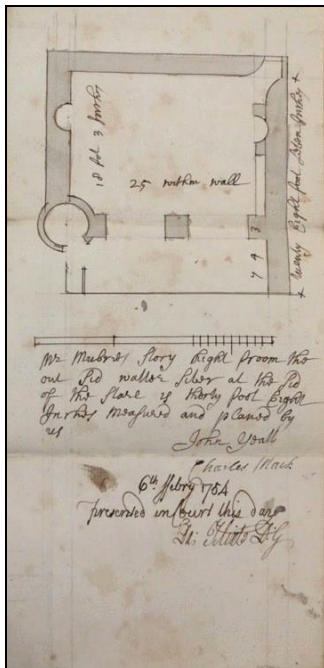 18 fot 3 Inches
25 within wall
twenty Eight foot Seven Inches
3
7 9
Mr Mubries Story Eight from the
out Sid wallee at the Sid
of the Stare is therty foot Eight
Inches Measured and planed by
us
John Yeall
Charles Mack
6th ffebry 1754
presented in Court this day